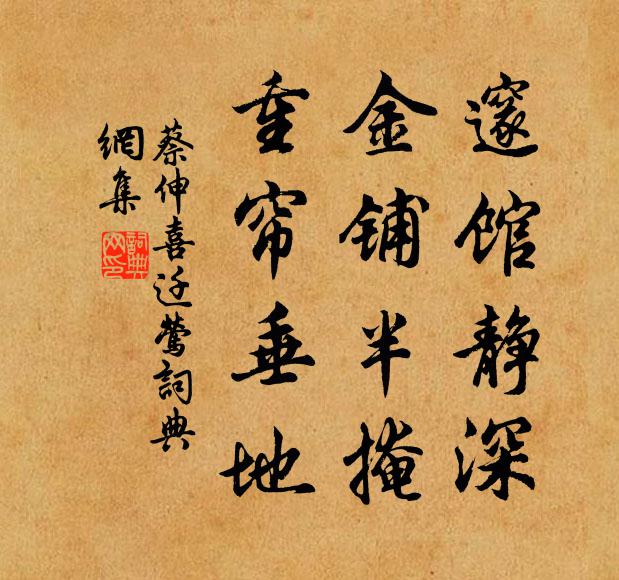 邃馆静深
金铺半掩
重帘垂地
蔡伸喜迁莺詞典
網集
詞典
网印